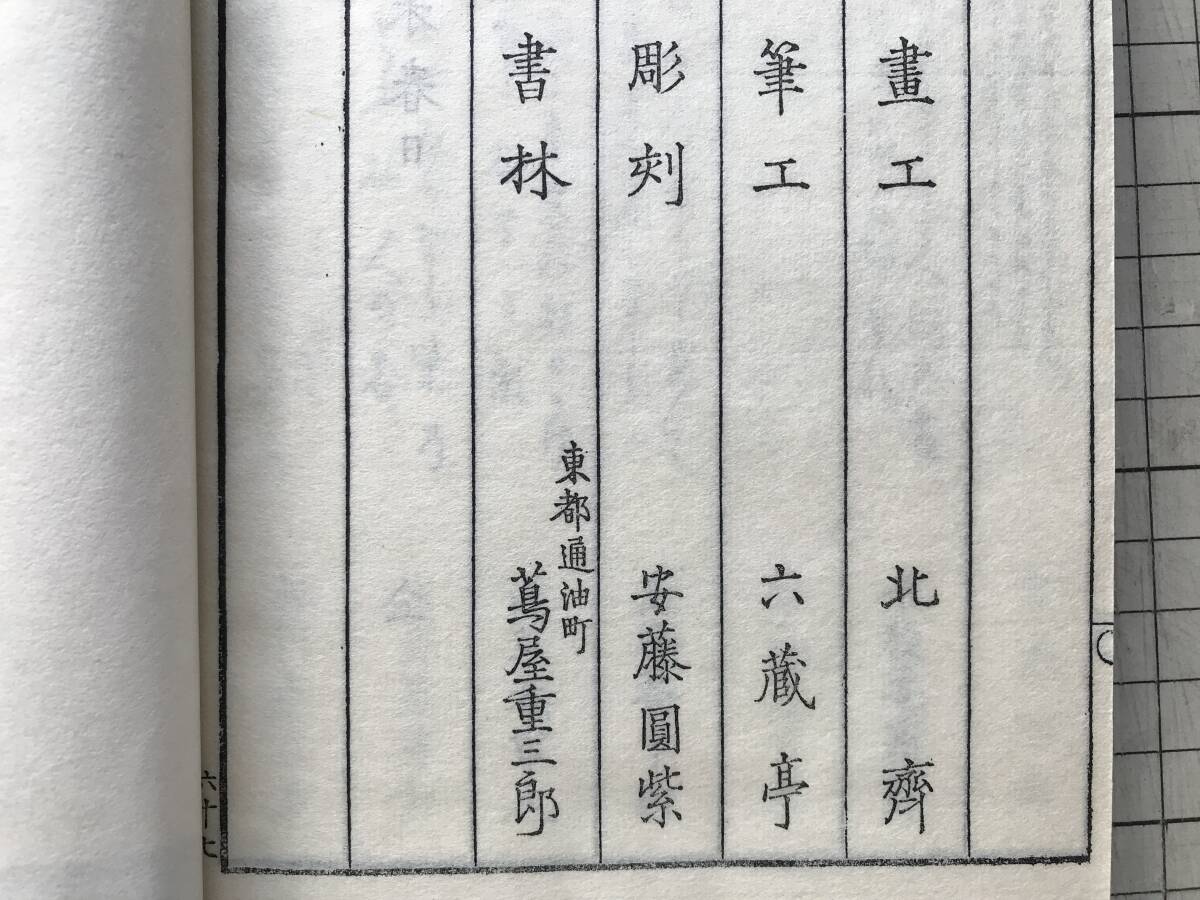 畫工 北齊
筆工 六蔵亭
彫刻 安藤圓紫
書林 東都通油町
蔦屋重三郎
六十七